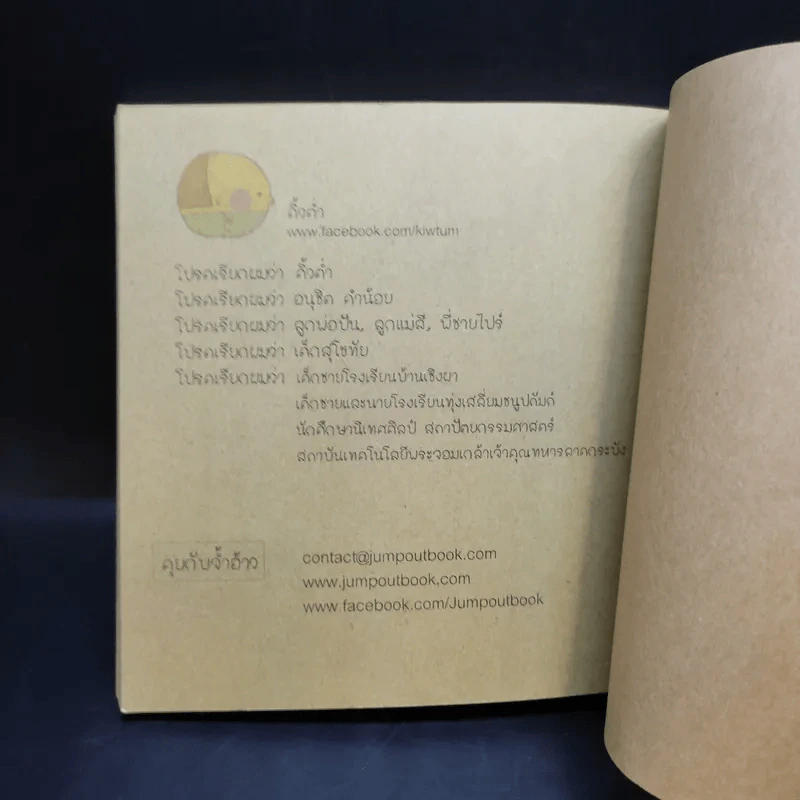 คิ้วต่ำ
www.facebook.com/kiwtum
โปรดเรียกผมว่า คิ้วต่ำ
โปรดเรียกผมว่า อนุชิต คำน้อย
โปรดเรียกผมว่า ลูกพ่อปัน, ลูกแม่สี, พี่ชายไปร์
โปรดเรียกผมว่า เด็กสุโขทัย
โปรดเรียกผมว่า เด็กชายโรงเรียนบ้านเชิงผา
เด็กชายและนายโรงเรียนทุ่งเสลี่ยมชนูปถัมภ์
นักศึกษานิเทศศิลป์ สถาปัตยกรรมศาสตร์
สถาบันเทคโนโลยีพระจอมเกล้าเจ้าคุณทหารลาดกระบัง
คุยกับจ้ำอ้าว
contact@jumpoutbook.com
www.jumpoutbook.com
www.facebook.com/Jumpoutbook